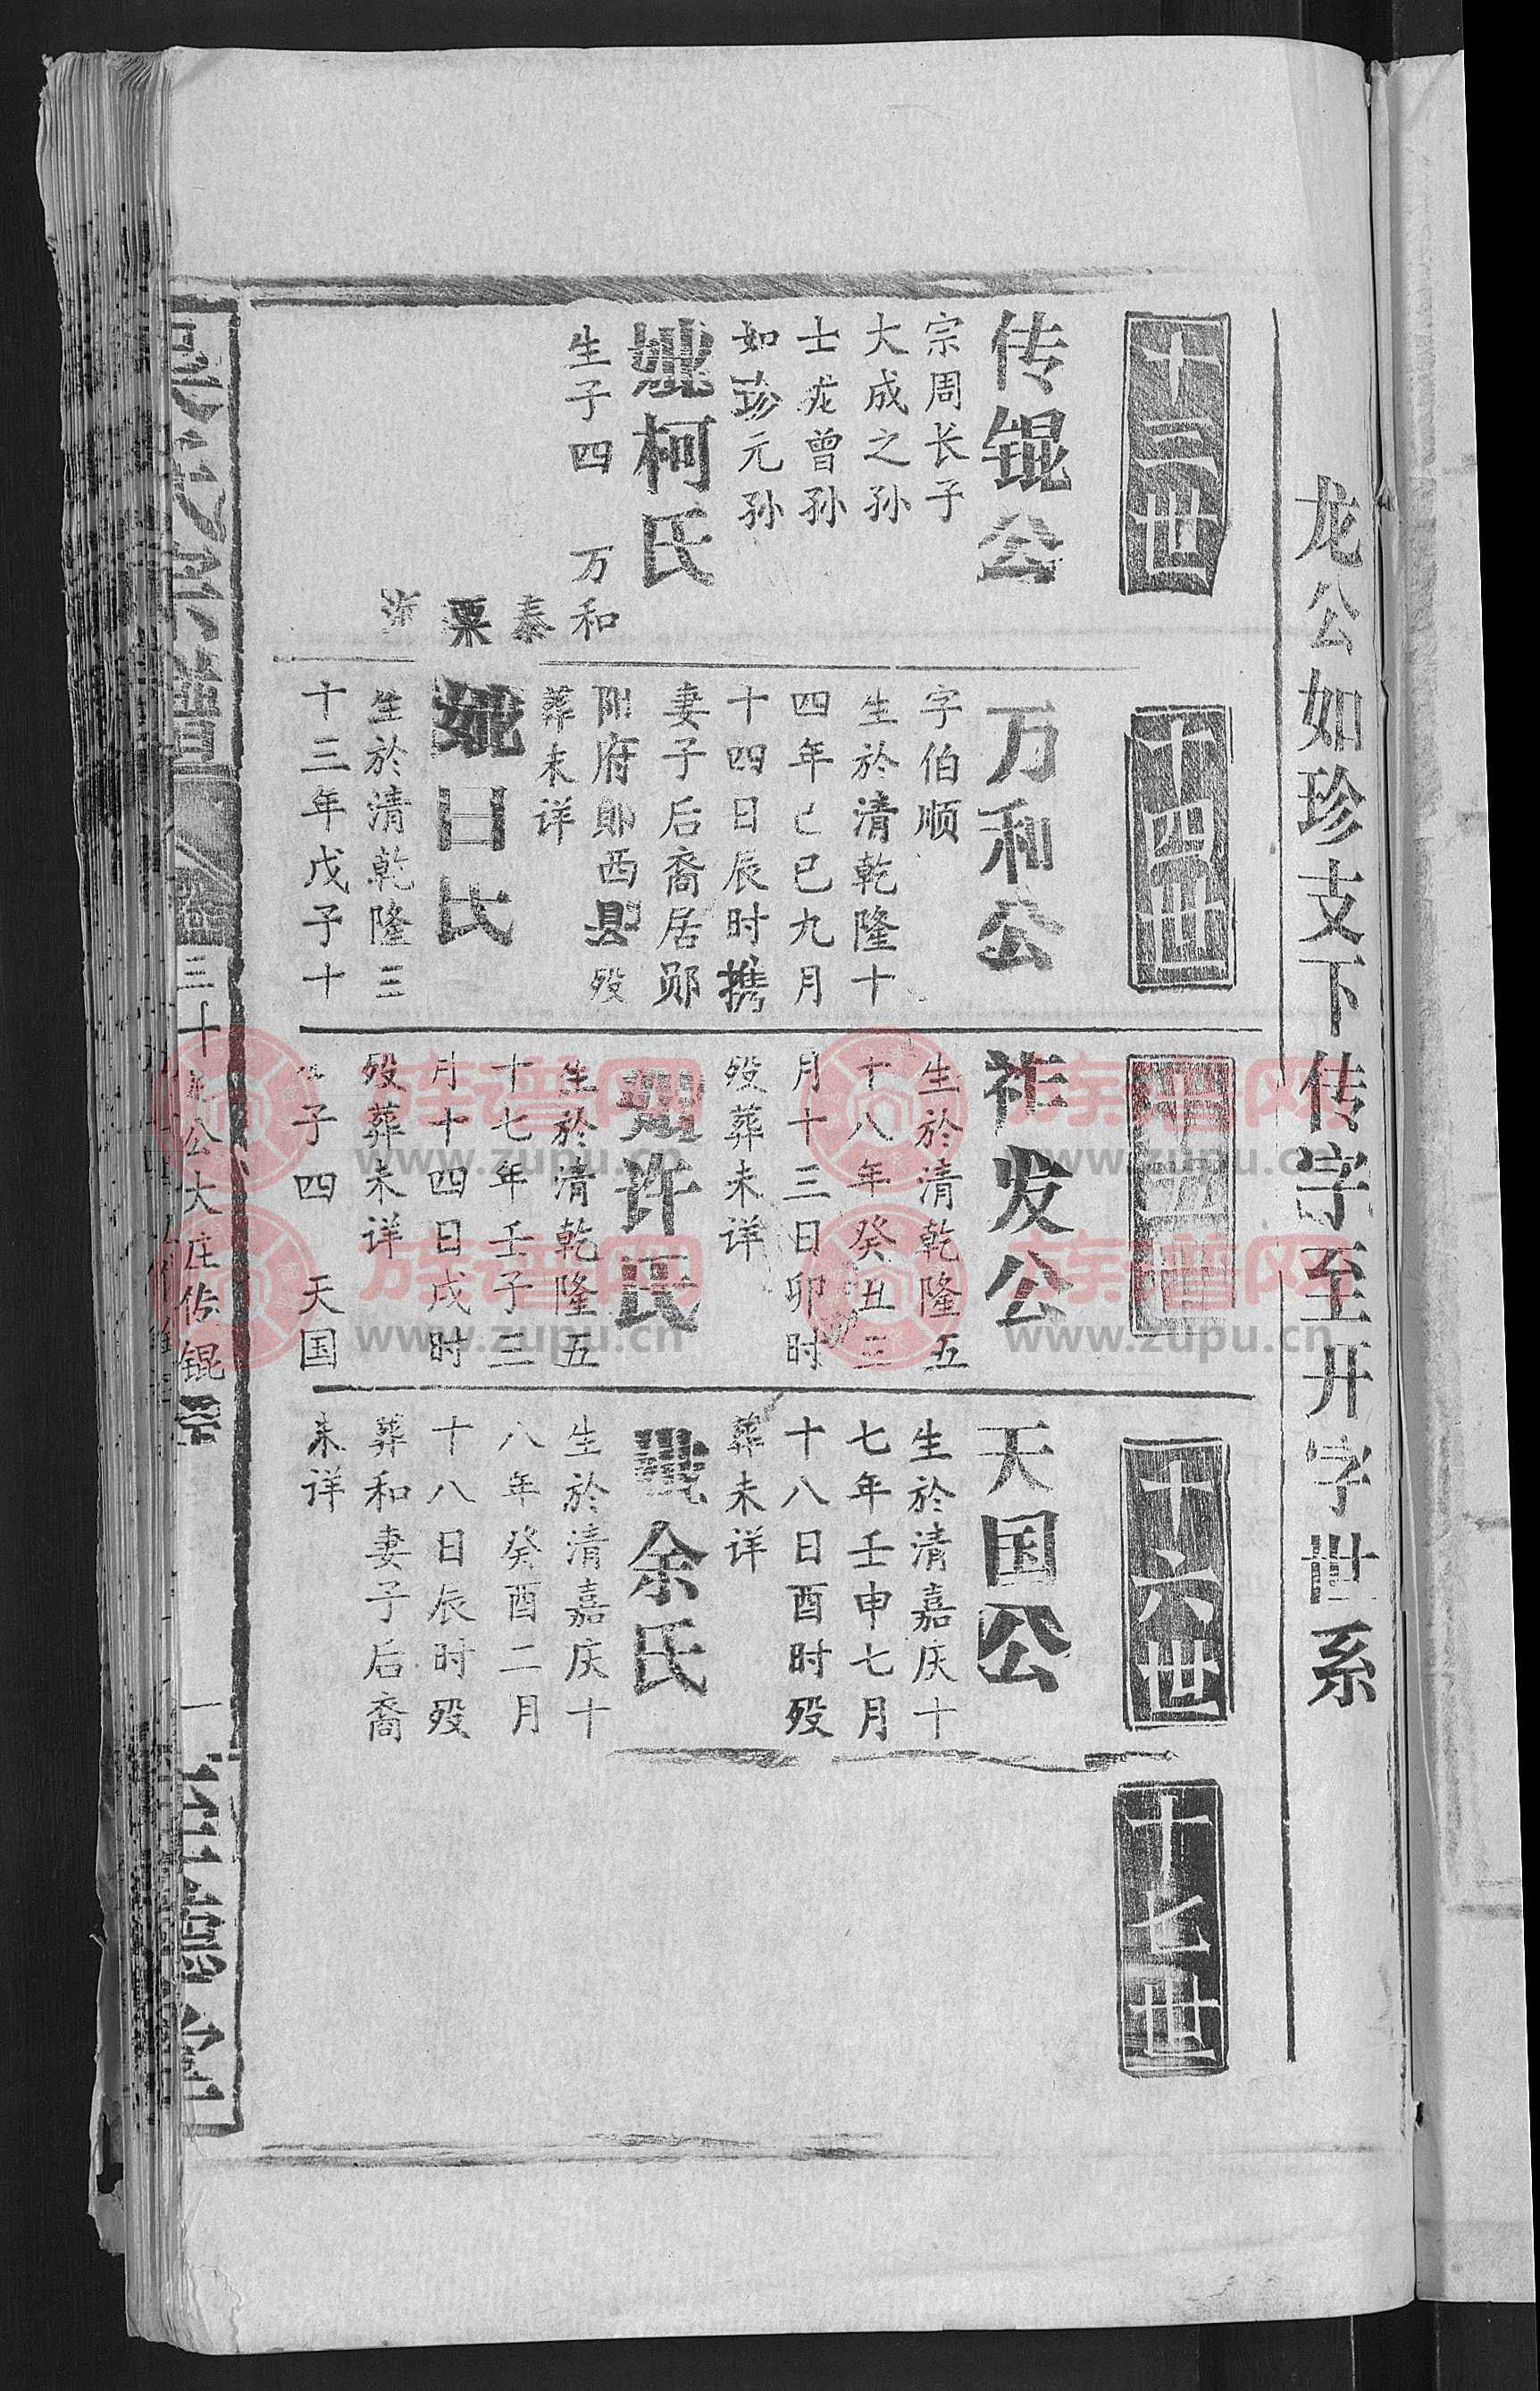 龙公如珍支下传字至开字世系
十三世
传锟公
宗周长子
大成之孙
士龙曾孙
如珍元孙
妣柯氏
生子四 万和
泰
粟
十四世
万和公
字伯顺
生於清乾隆十
四年己巳九月
十四日辰时携
妻子后裔居郧
阳府郧西县殁
葬未详
妣日氏
生於清乾隆三
十三年戊子十
十五世
祚发公
生於清乾隆五
十八年癸丑三
月十三日卯时
殁葬未详
妣许氏
生於清乾隆五
十七年壬子三
月十四日戌时
殁葬未详
生子四 天国
十六世
天国公
生於清嘉庆十
七年壬申七月
十八日酉时殁
葬未详
妣余氏
生於清嘉庆十
八年癸酉二月
十八日辰时殁
葬和妻子后裔
未详
十七世
宗谱
三十
龙公大庄传锟宗
一
族谱网
www.zupu.cn
族谱网
www.zupu.cn
族谱网
www.zupu.cn
族谱网
www.zupu.cn